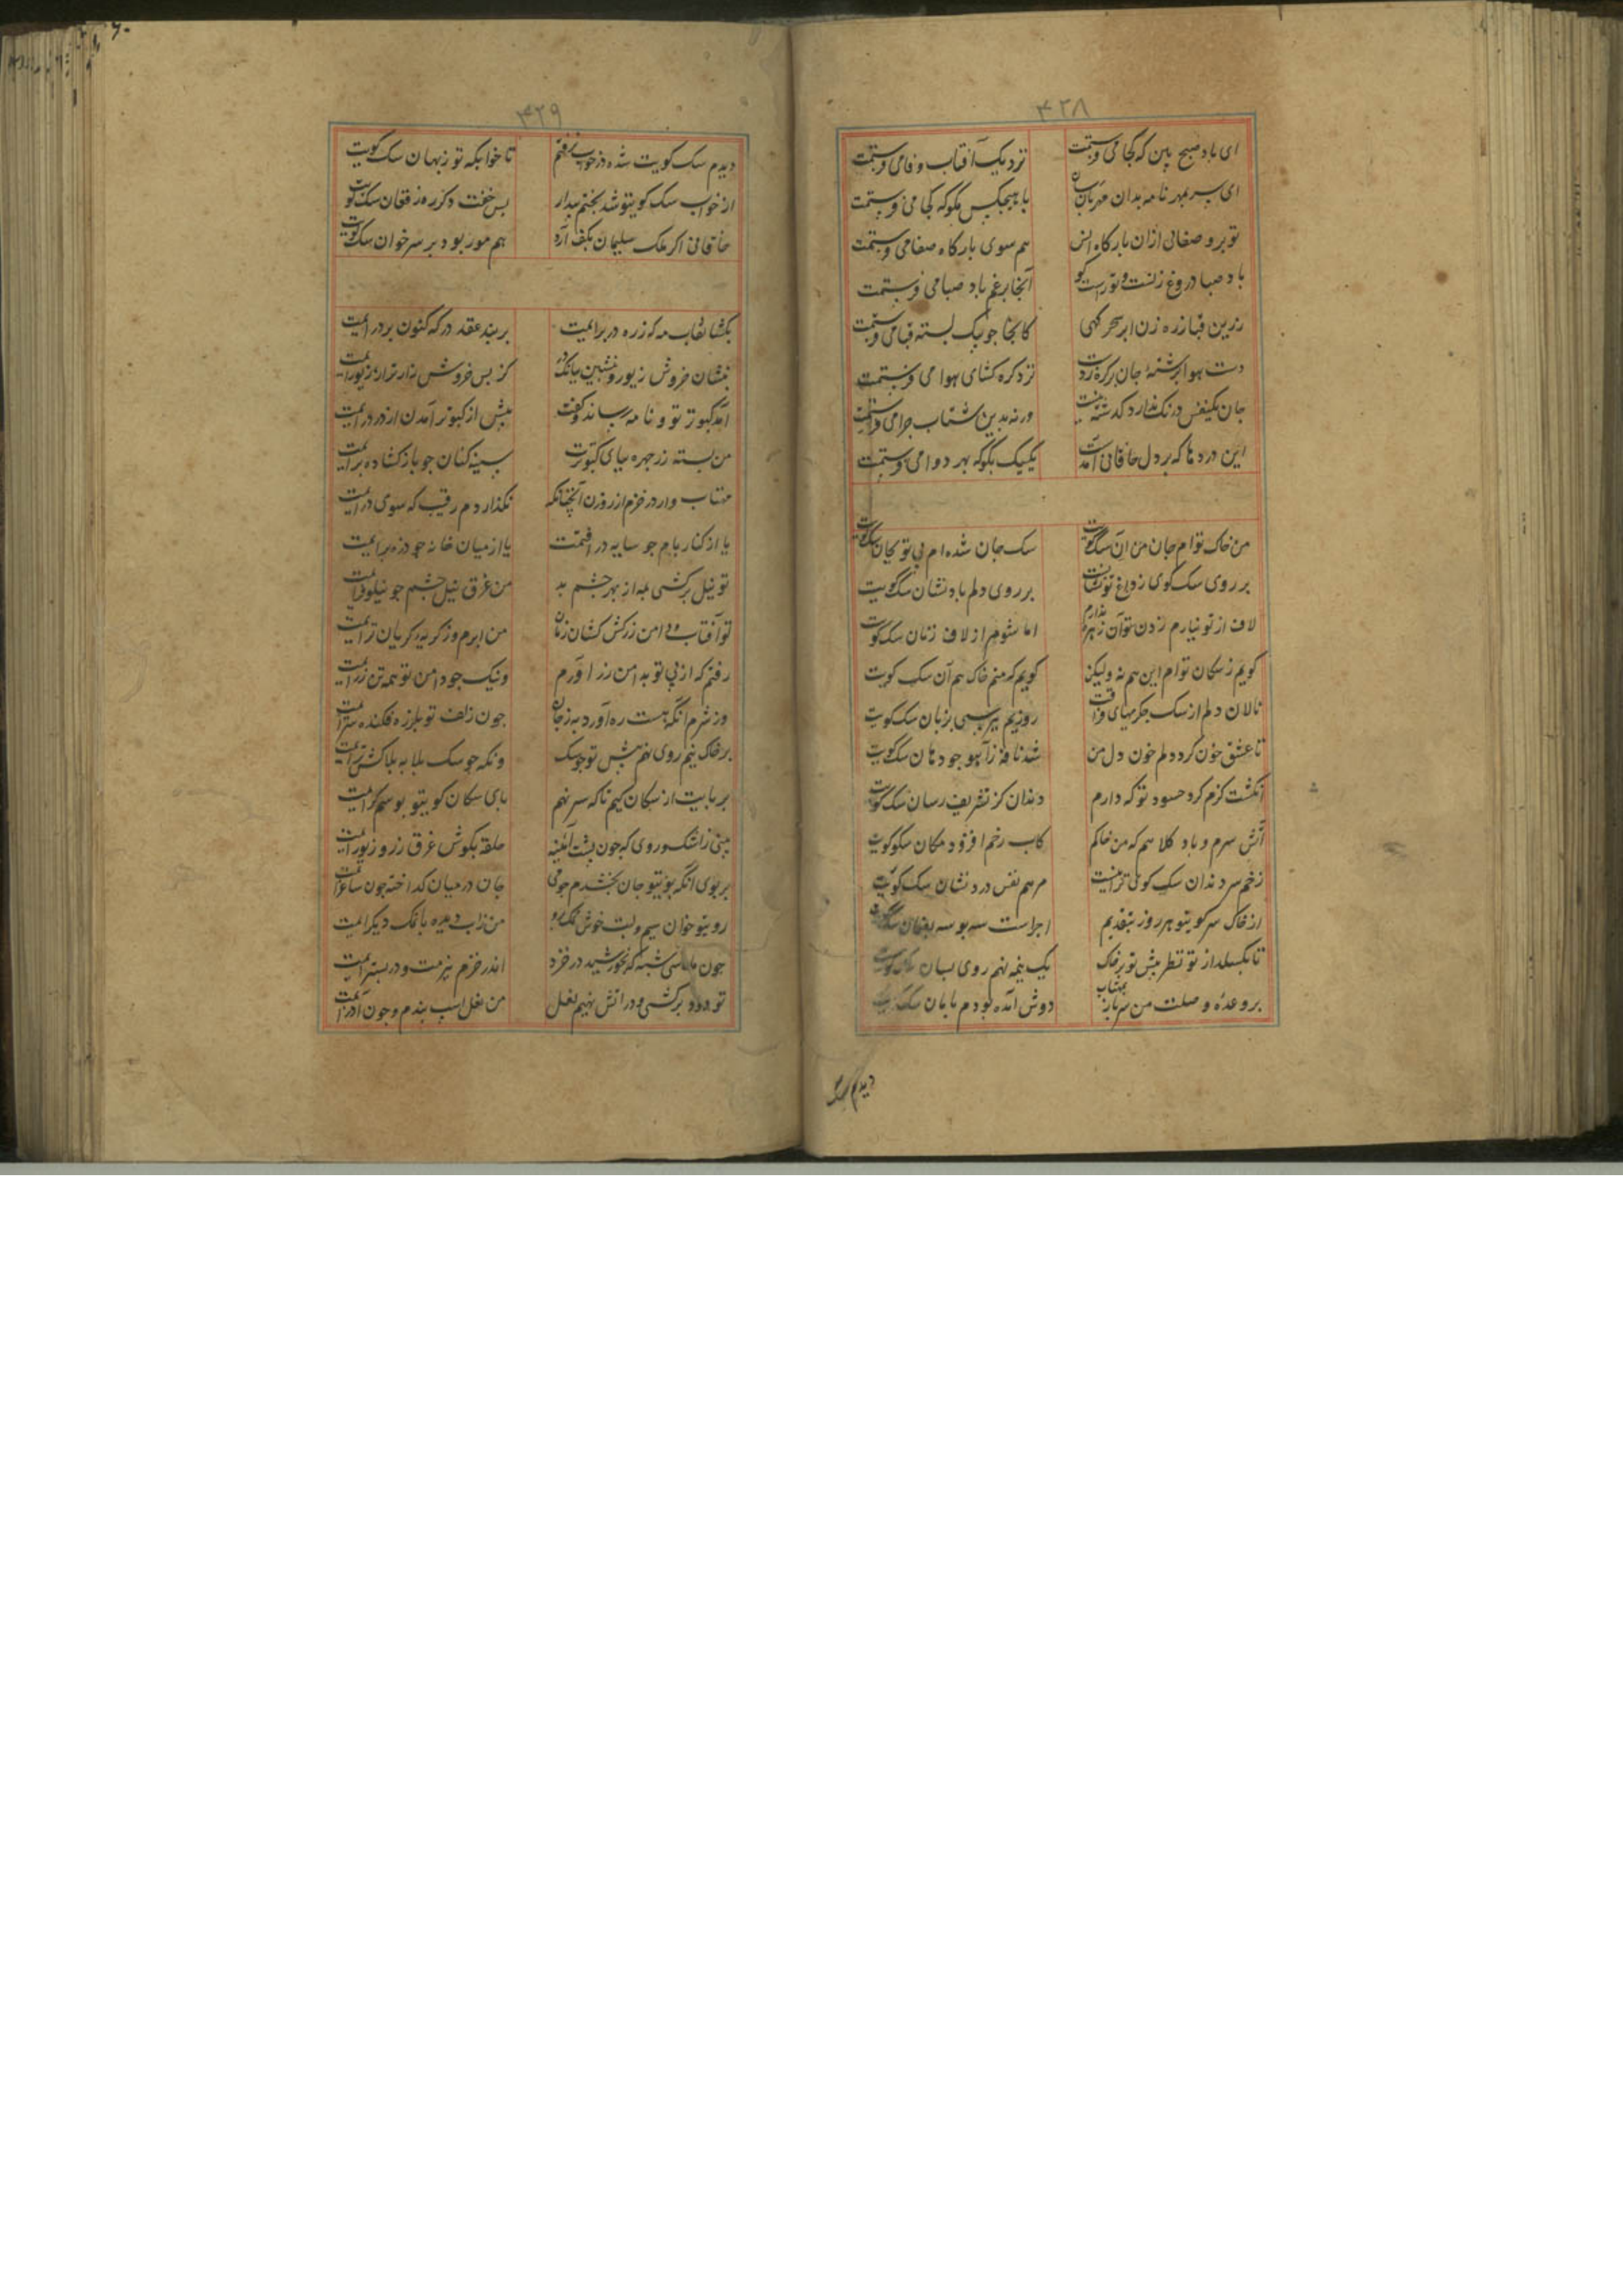 ۴۲۸
ای باد صبح بین که کجا می فرستمت
نزدیک آفتاب وفا می فرستمت
ای سر بمهر نامه بدان مهربان رسان
با هیچکس مگو که کجا می فرستمت
تو پرو صفائی ازان بارکاه انس
هم سوی بارکاه صفا می فرستمت
باد صبا دروغ زنست و تو راست کو
آنجا برغم باد صبا می فرستمت
زرین قبا زره زن ابر سحر کهی
کانجا جو پیک بسته قبا می فرستمت
دست هوا برشته جان بر کره زدست
نزد کره کشای هوا می فرستمت
جان یکنفس درنک ندارد کذشتنیست
ورنه بدین شتاب جرا می فرستمت
این دردها که بر دل خاقانی آمدست
یکیک بگو که بهر دوا می فرستمت
من خاک توام جان من آن سک کویت
سک جان شده ام بی تو بجان سک کویت
بر روی سک کوی ز داغ تو نشانست
بر روی دلم باد نشان سک کویت
لاف از تو نیارم زدن توان زهره ندارم
اما شوم از لاف زنان سک کویت
کویم ز سکان توام این هم نه ولیکن
کویم که منم خاک هم آن سک کویت
نالان دلم از سک جکرمهای فراقت
روزیم بپرسی بزبان سک کویت
تا عشق خون کرد دلم خون دل من
شد نافه ز آهو جو دهان سک کویت
انکشت کزم کرد حسود تو که دارم
دندان کز تشریف رسان سک کویت
آتش سرم و باد کلاهم که من خاکم
کاب رخم افزود مکان سک کویت
زخم سر دندان سک کوی ترا نیست
مرهم نفس درد نشان سک کویت
از خاک سر کویتو هر روز بتقدیم
اجراست سه بوسه بدهان سک کویت
تا بکسلد از تو نظرم پیش تو بر خاک
یک نیمه نهم روی بسان سک کویت
بر وعده وصلت من سرباز بمهتاب
دوش آمده بودم تا بان سک کویت
دیدم سک
۴۲۹
دیدم سک کویت شده در خواب نرفتم
تا خوابکه تو ز نهان سک کویت
از خواب سک کویتو شد بختم بیدار
بس خفت دکر ره ز فغان سک کویت
خاقانی اکر ملک سلیمان بکف آرد
هم مور بود بر سر خوان سک کویت
بکشا نقاب مه که زره در بر آیمت
بر بند عقد در که کنون بر در آیمت
بنشان خروش زیور و بنشین ببانک در
کز بس خروش زار تر از زیور آیمت
آمد کبوتر تو و نامه رساند و کفت
پیش از کبوتر آمدن از در در آیمت
من بسته زر جهره بپای کبوترت
سینه کنان جو باز کشاده بر آیمت
مهتاب وار در خزم از روزن آنچنانکه
نکذاردم رقیب که سوی در آیمت
یا از کنار بام جو سایه در افتمت
یا از میان خانه جو ذره بر آیمت
تو نیل برکشی مه از بهر جشم بد
من غرق نیل جشم جو نیلوفر آیمت
تو آفتاب و دامن زرکش کشان زنان
من ابرم و ز کریه کریان تر آیمت
رفتم که از پی تو بدامن زر آورم
ونیک جو دامن تو همه تن زر آیمت
وز شرم انکه نیست ره آورد به ز جان
جون زلف تو بلرزه فکنده سر آیمت
بر خاک نیم روی نهم پیش تو جو سک
ونکه جو سک بلابه بلاکش تر آیمت
بر پایت از سکان کیم تا که سر نهم
پای سکان کویتو بوسم کر آیمت
بینی ز اشک و روی که جون پشت آئینه
حلقه بکوش غرق زر و زیور آیمت
بر بوی انکه بوی تو جان بخشدم جو می
جان در میان کداخته جون ساغر آیمت
رویتو خوان سیم و لبت خوش نمک برو
من زاب دیده با نمک دیکر آیمت
جون ماه سی شبه که بخورشید در خزد
اندر خزم ببزمت و در بستر آیمت
تو دود برکشی و در اتش نهیم نعل
من نعل اسب بندم و جون آذر آیمت